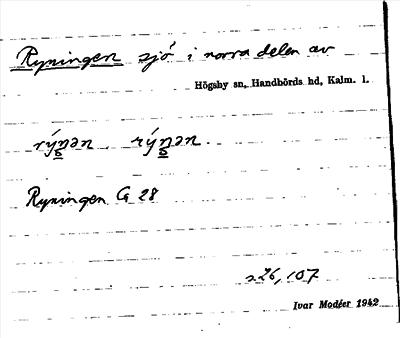 Ryningen sjö i norra delen av
Högsby sn, Handbörds hd, Kalm. l.
rýŋən rýŋən
Ryningen G 28
s. 26, 107
Ivar Modéer 1942